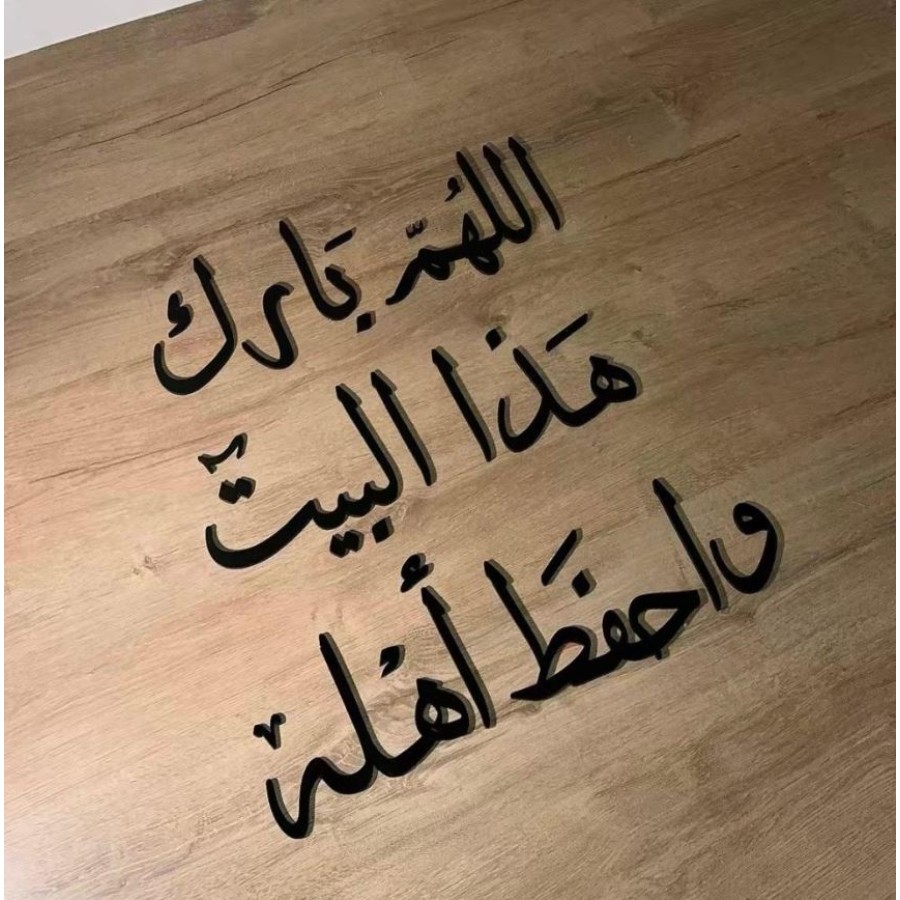 اللهُمّ بَارك
هَذا البيت
واحفظَ أهْله